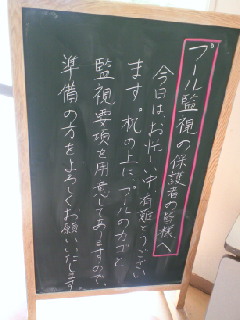 プール監視の保護者の皆様へ
今日は、お忙しい中、有難とうござい
ます。机の上に、プールのカゴと
監視要項を用意してありますので、
準備の方をよろしくお願いいたします。